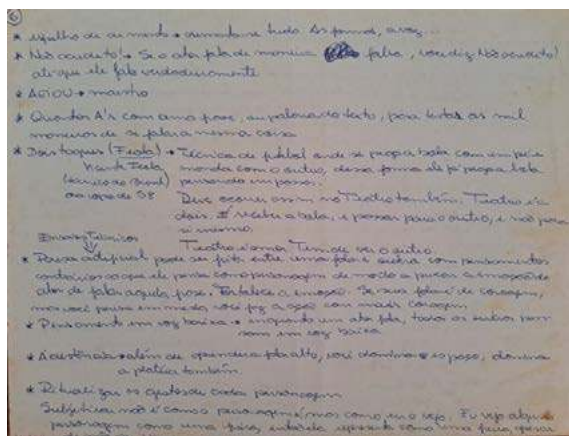 6
* espelho de aumento → aumenta-se tudo As formas, a voz...
* Não acredito! → Se o ator fala de maneira falsa, você diz Não acredito!
até que ele fale verdadeiramente
* AEIOU →
* Quantos A's com uma frase, ou palavra do texto, para testar as mil
maneiras de se falar a mesma coisa
* Dois toques (Feola) → Técnica de futebol onde se pega a bola com um pé e
manda com o outro, dessa forma ele já pega a bola
pensando em passar.
Vicente Feola
(técnico do Brasil)
da copa de 58
Deve ocorrer assim no Teatro também. Teatro é a
dois. É receber a bola, e passar para o outro, e não para
si mesmo.
Teatro é Tem de ver o outro.
Ensaios Técnicos
* Pausa artificial pode ser feita entre uma fala e outra com pensamentos
contrários ao que ele pensa como personagem de modo a a emoção do
ator de falar aquela frase. Fortalece a emoção. Se sua fala é de coragem,
mas você pensa em medo, você faz a ação com mais coragem
* Pensamento em voz baixa → enquanto um ator fala, todos os outros pen
sam em voz baixa
* À distância → além de aprender a falar alto, você domina o espaço, domina
a platéia também.
* Ritualizar os gestos de cada personagem
Subjetivar não é como o personagem é, mas como eu o vejo. Eu vejo algum
personagem como uma fera, então ele apresenta como uma fera, apesar